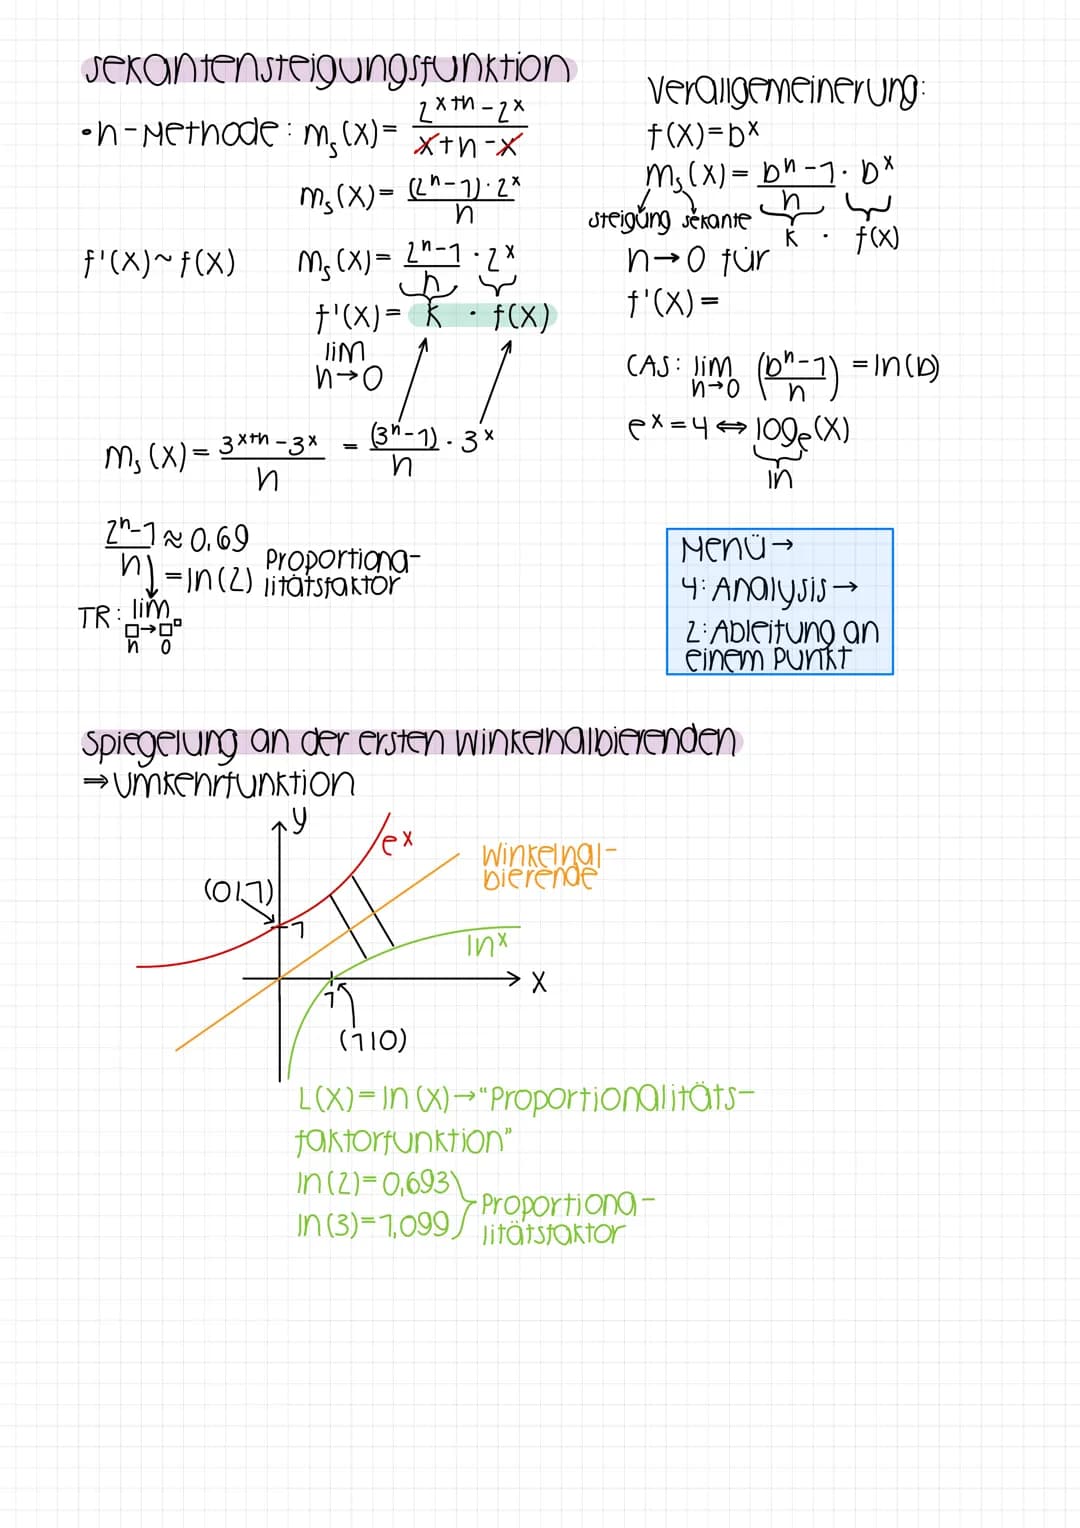 Sekantensteigungsfunktion
•h-Methode: mₛ(x)= (2^(x+h) - 2^x)/(x+h-x)
mₛ(x)= ((2^h-1)·2^x)/h
f'(x)~f(x)
mₛ(x)= (2^h-1)/h · 2^x
f'(x)= k · f(x)
lim
h→0
mₛ(x)= (3^(x+h) - 3^x)/h = (3^h-1)/h · 3^x
(2^h-1)/h ≈ 0,69
=ln(2) Proportiona-
litätsfaktor
TR: lim
□→□ □
h 0
Verallgemeinerung:
f(x)=b^x
mₛ(x)= (b^h-1)/h · b^x
Steigung Sekante
k · f(x)
h→0 für
f'(x)=
CAS: lim h→0 ((b^h-1)/h) = ln(b)
e^x=4⇔logₑ(x)
ln
Menü→
4: Analysis→
2: Ableitung an
einem Punkt
Spiegelung an der ersten Winkelhalbierenden
⇒Umkehrfunktion
y
e^x
Winkelhal-
bierende
(0|1)
1
ln^x
x
1
(1|0)
L(x)=ln(x)→"Proportionalitäts-
faktorfunktion"
ln(2)=0,693
ln(3)=1,099
Proportiona-
litätsfaktor